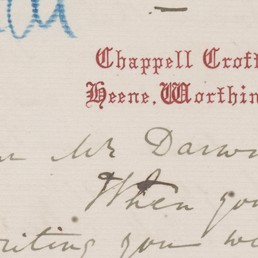 Chappell Croft
Heene, Worthin
Mr Darw
When you
writing you w